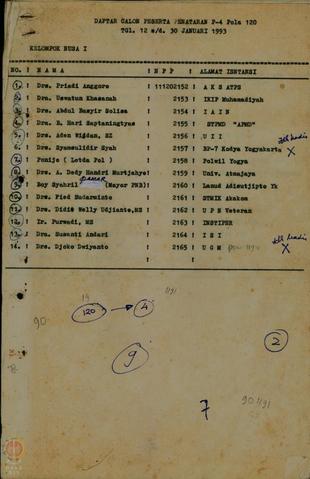 DAFTAR CALON PESERTA PENATARAN P-4 Pola 120
TGL. 12 s/d. 30 JANUARI 1993
KELOMPOK NUSA I
NO. ! N A M A ! N P P ! ALAMAT INSTANSI
1. ! Drs. Priadi Anggoro ! 111202152 ! A K S ATPS
2. ! Dra. Uswatun Khasanah ! 2153 ! IKIP Muhamadiyah
3. ! Drs. Abdul Basyir Solisa ! 2154 ! I A I N
4. ! Drs. B. Hari Saptaningtyas ! 2155 ! STPMD "APMD"
5. ! Drs. Aden Wijdan, SZ ! 2156 ! U I I
6. ! Drs. Syamsulidir Syah ! 2157 ! BP-7 Kodya Yogyakarta
7. ! Ponijo ( Letda Pol ) ! 2158 ! Polwil Yogya
8. ! Drs. A. Dedy Handri Murtjahyo ! 2159 ! Univ. Atmajaya
9. ! Boy Syahril (Mayor PNB) ! 2160 ! Lanud Adisutjipto Yk
10. ! Drs. Pied Sudarminto ! 2161 ! STMIK Akakom
11. ! Drs. Didit Welly Udjianto,MS ! 2162 ! U P N Veteran
12. ! Ir. Purwadi, MS ! 2163 ! INSTIPER
13. ! Dra. Susanti Andari ! 2164 ! I S I
14. ! Drs. Djoko Dwiyanto ! 2165 ! U G M
X
X
120 → 4
90
9
2
7
90